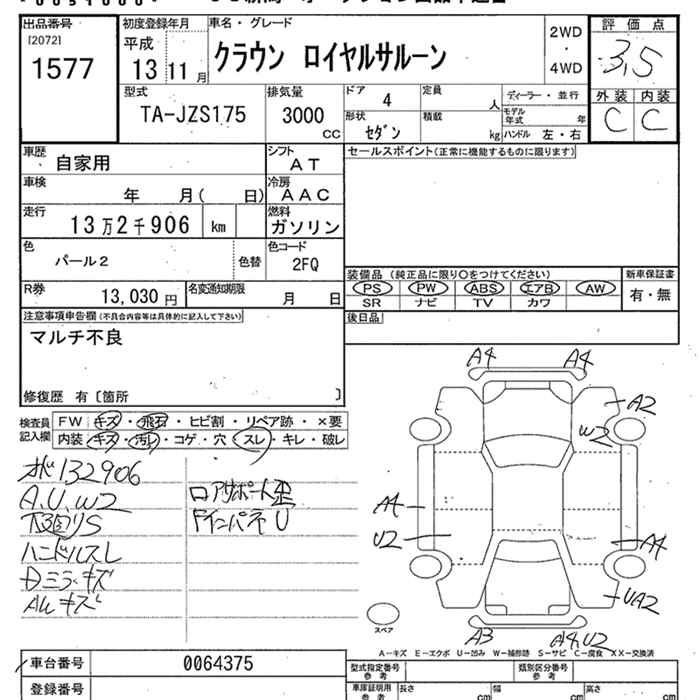 出品番号
[2072]
1577
初度登録年月
平成
13 11 月
車名・グレード
クラウン ロイヤルサルーン
2WD
・
4WD
評価点
3,5
外装 内装
C C
型式
TA-JZS175
排気量
3000
CC
ドア
4
定員
人
ディーラー・並行
モデル年式 年
形状
セダン
積載
kg
ハンドル 左・右
車歴
自家用
シフト
AT
セールスポイント(正常に機能するものに限ります)
車検
年 月( 日)
冷房
AAC
走行
13万2千906 km
燃料
ガソリン
色
パール2
色替
色コード
2FQ
装備品(純正品に限り○をつけてください)
PS PW ABS エアB AW
SR ナビ TV カワ
新車保証書
有・無
R券
13,030 円
名変通知期限
月 日
後日品
注意事項申告欄(不具合内容等は具体的に記入して下さい)
マルチ不良
修復歴 有〔箇所 〕
検査員記入欄
FW キズ・飛石・ヒビ割・リペア跡・×要
内装 キズ・汚れ・コゲ・穴・スレ・キレ・破レ
132906
A.U.W2
ハンドルスレ
Dミラーキズ
AWキズ
ロアサポート歪
ドインパネU
A4 A4
A2
W2
A4
U2
A4
UA2
A3
A4,U2
スペア
A−キズ E−エクボ U−凹み W−補修跡 S−サビ C−腐食 XX−交換済
車台番号
0064375
登録番号
型式指定番号
参考
類別区分番号
参考
車庫証明用
参考
長さ cm
幅 cm
高さ cm